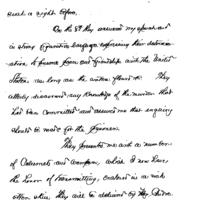 such a night before.
On the 8th they answered my speech and
in strong figurative language expressing their determin-
ation to pursue peace and friendship with the United
States as long as the waters flowed &c. They
utterly disavowed any knowledge of the murder that
had been committed and assured me that enquiry
should be made for the prisoner.
They presented me with a number
of Calumets and wampum, which I now have
the honor of transmitting, enclosed in a neat
otter skin, they are so designed by